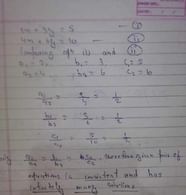 2x + 3y = 5 — (i)
4x + 6y = 10 — (ii)
Comparing eqn (i) and (ii)
a₁ = 2, b₁ = 3 c₁ = 5
a₂ = 4 b₂ = 6 c₂ = 10
a₁/a₂ = 2/4 = 1/2
b₁/b₂ = 3/6 = 1/2
c₁/c₂ = 5/10 = 1/2
a₁/a₂ = b₁/b₂ = c₁/c₂, therefore given pair of
equations is consistent and has
infinitely many solutions